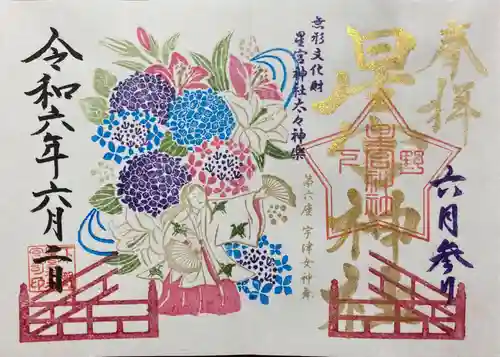 奉拝
星宮神社
六月参り
下野
星宮神社
無形文化財
星宮神社太々神楽
第六座 宇津女神舞
令和六年六月二日